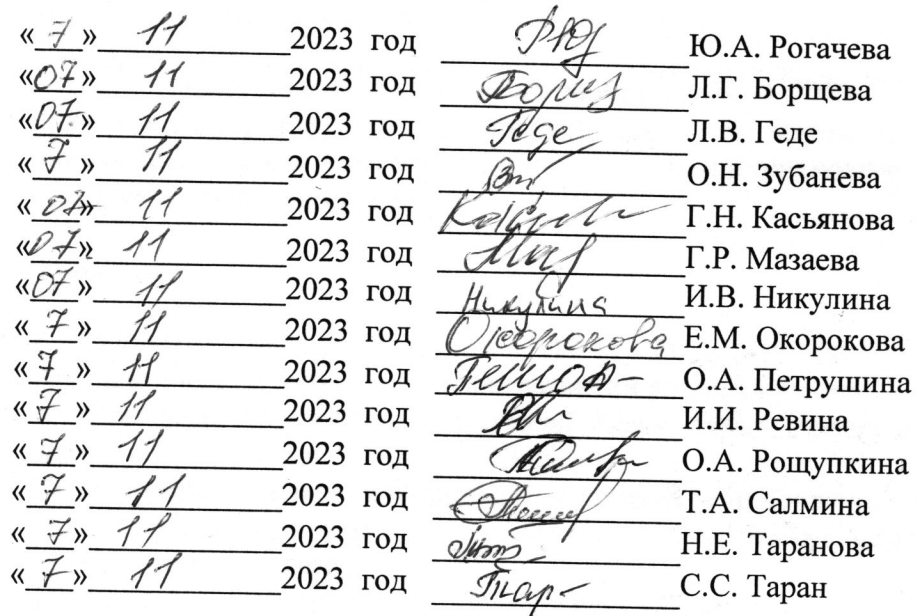 « 7 » 11 2023 год Ю.А. Рогачева
«07» 11 2023 год Л.Г. Борщева
«07» 11 2023 год Геде Л.В. Геде
« 7 » 11 2023 год О.Н. Зубанева
« 07» 11 2023 год Г.Н. Касьянова
«07» 11 2023 год Г.Р. Мазаева
«07 » 11 2023 год Никулина И.В. Никулина
« 7 » 11 2023 год Окорокова Е.М. Окорокова
« 7 » 11 2023 год О.А. Петрушина
« 7 » 11 2023 год И.И. Ревина
« 7 » 11 2023 год О.А. Рощупкина
« 7 » 11 2023 год Т.А. Салмина
« 7 » 11 2023 год Н.Е. Таранова
« 7 » 11 2023 год С.С. Таран